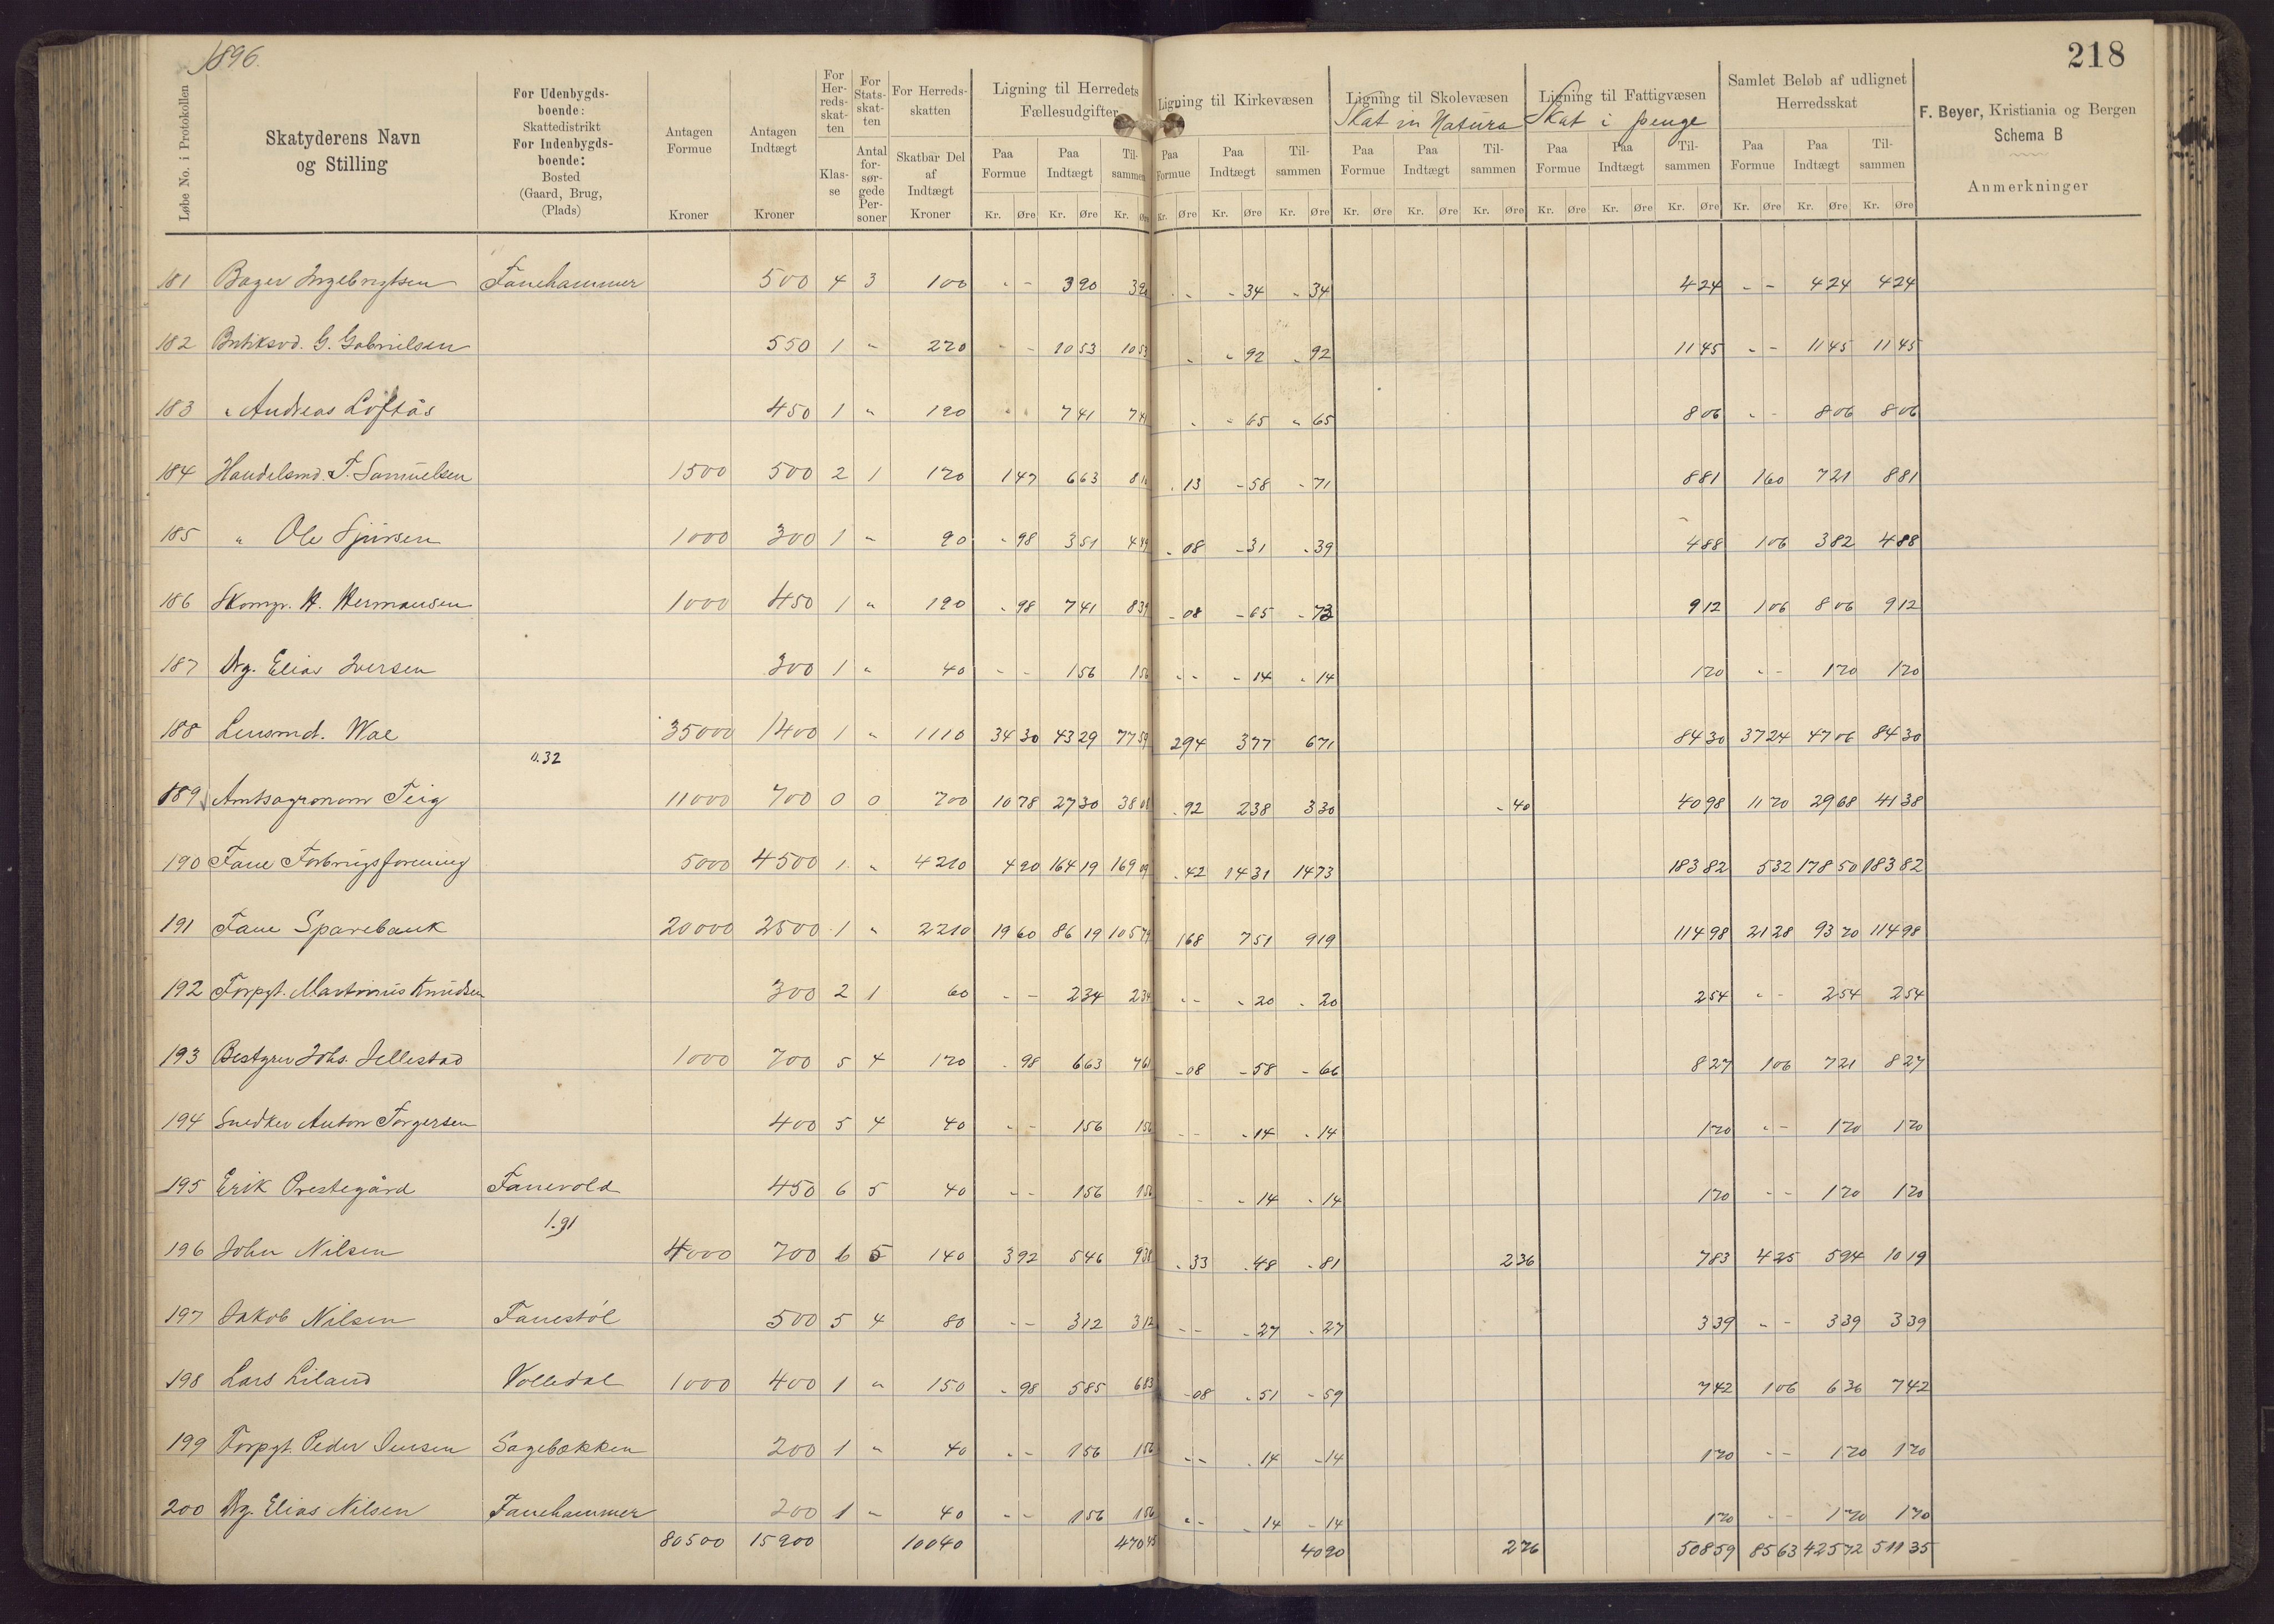 1896.
218
Løbe No. i Protokollen
Skatyderens Navn og Stilling
For Udenbygdsboende: Skattedistrikt For Indenbygdsboende: Bosted (Gaard, Brug, (Plads)
Antagen Formue Kroner
Antagen Indtægt Kroner
For Herredsskatten Klasse
For Statsskatten Antal forsørgede Personer
For Herredsskatten Skatbar Del af Indtægt Kroner
Ligning til Herredets Fællesudgifter
Ligning til Kirkevæsen
Ligning til Skolevæsen
Skat in Natura
Ligning til Fattigvæsen
Skat i penge
Samlet Beløb af udlignet Herredsskat
F. Beyer, Kristiania og Bergen
Schema B
Anmerkninger
Paa Formue Paa Indtægt Tilsammen Paa Formue Paa Indtægt Tilsammen Paa Formue Paa Indtægt Tilsammen Paa Formue Paa Indtægt Tilsammen Paa Formue Paa Indtægt Tilsammen
Kr. Øre Kr. Øre Kr. Øre Kr. Øre Kr. Øre Kr. Øre Kr. Øre Kr. Øre Kr. Øre Kr. Øre Kr. Øre Kr. Øre Kr. Øre Kr. Øre Kr. Øre
181 Bager Ingebrigtsen Fanehammer 500 4 3 100 - - 390 390 - - - 34 - 34 424 - - 424 424
182 G. Gabrielsen 550 1 " 270 - - 1053 1053 - - 92 - 92 1145 - - 1145 1145
183 " Andreas Loftås 450 1 " 190 - - 741 741 - - 65 - 65 806 - - 806 806
184 Handelsmd. T. Samuelsen 1500 500 2 1 170 147 663 810 - 13 - 58 - 71 881 160 721 881
185 " Ole Sjursen 1000 300 1 " 90 - 98 351 449 - 08 - 31 - 39 488 106 382 488
186 Skomgr. H. Hermansen 1000 450 1 " 190 - 98 741 839 - 08 - 65 - 73 912 106 806 912
187 Elias Iversen 300 1 " 40 - - 156 156 - - - 14 - 14 170 - - 170 170
188 Lensmd. Wae 35000 1400 1 " 1110 3430 4329 7759 294 377 671 8430 3724 4706 8430
n. 32
189 Amtsagronom Teig 11000 700 0 0 700 1078 2730 3808 - 92 238 330 - 40 4098 1170 2968 4138
190 Fane Forbrugsforening 5000 4500 1 " 4210 490 16419 16909 - 42 1431 1473 18382 532 17850 18382
191 Fane Sparebank 20000 2500 1 " 2210 1960 8619 10579 168 751 919 11498 2128 9370 11498
192 Forpgt. Martinius Knudsen 300 2 1 60 - - 234 234 - - - 20 - 20 254 - - 254 254
193 Bestyrer Johs. Jellestad 1000 700 5 4 170 - 98 663 761 - 08 - 58 - 66 827 106 721 827
194 Snedker Anton Torgersen 400 5 4 40 - - 156 156 - - - 14 - 14 170 - - 170 170
195 Erik Prestegård Fanevold 450 6 5 40 - - 156 156 - - 14 - 14 170 - - 170 170
1.91
196 John Nilsen 4000 700 6 5 140 392 546 938 - 33 - 48 - 81 236 783 425 594 1019
197 Jakob Nilsen Fanestøl 500 5 4 80 - - 312 312 - - - 27 - 27 339 - - 339 339
198 Lars Liland Volledal 1000 400 1 " 150 - 98 585 683 - 08 - 51 - 59 742 106 636 742
199 Forpgt. Peder Jensen Sagebækken 200 1 " 40 - - 156 156 - - - 14 - 14 170 - - 170 170
200 Elias Nilsen Fanehammer 200 1 - 40 - - 156 156 - - - 14 - 14 170 - - 170 170
80500 15900 10040 47045 4090 276 50859 8563 42572 51135